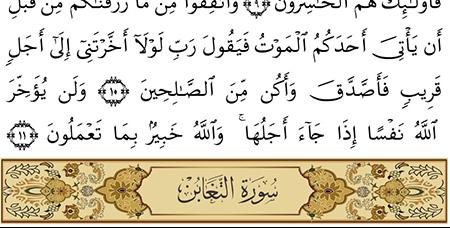 فَأُولَـٰٓئِكَ هُمُ ٱلْخَـٰسِرُونَ ۝٩ وَأَنفِقُوا۟ مِن مَّا رَزَقْنَـٰكُم مِّن قَبْلِ
أَن يَأْتِىَ أَحَدَكُمُ ٱلْمَوْتُ فَيَقُولَ رَبِّ لَوْلَآ أَخَّرْتَنِىٓ إِلَىٰٓ أَجَلٍ
قَرِيبٍ فَأَصَّدَّقَ وَأَكُن مِّنَ ٱلصَّـٰلِحِينَ ۝١٠ وَلَن يُؤَخِّرَ
ٱللَّهُ نَفْسًا إِذَا جَآءَ أَجَلُهَا ۚ وَٱللَّهُ خَبِيرٌۢ بِمَا تَعْمَلُونَ ۝١١
سُورَةُ التَّغَابُنِ